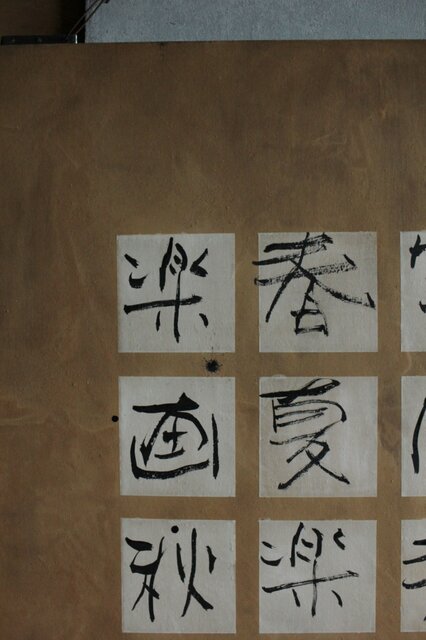 楽 春
画 夏
秋 楽